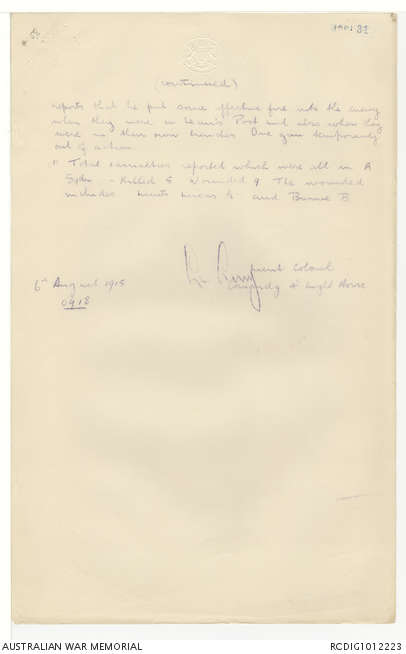 (continued)
reports that he put some effective fire into the enemy
when they were in Leanis Post and also when they
were in their own trenches One gun temporarily
out of action
" Total casualties reported which were all in A
Sqdn - Killed 5 Wounded 9 The wounded
includes Lieuts and B
Lieut Colonel
Comdg Light Horse
6th August 1915
0918
AUSTRALIAN WAR MEMORIAL
RCDIG1012223